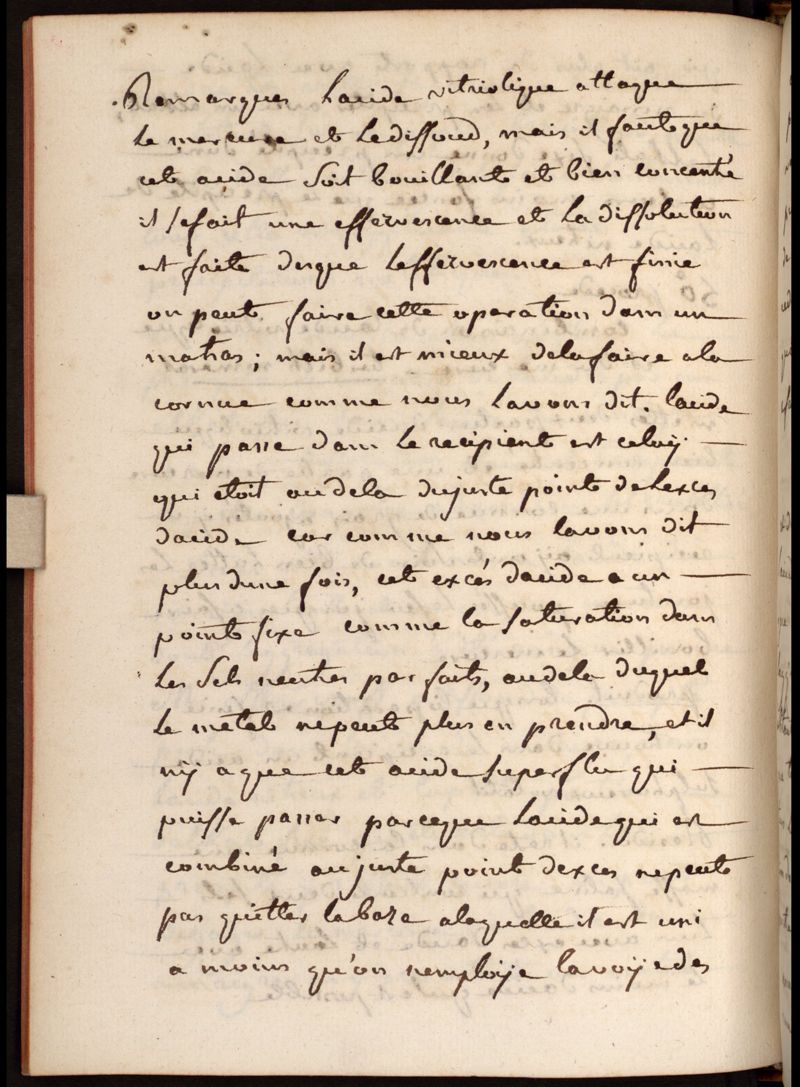 Remarques Lacide vitriolique attaque
le mercure et Le dissoud, mais il faut que
cet acide soit bouillant et bien concentré
il se fait une effervescence et La dissolution
est faite desque Leffervescence est finie
on peut faire cette operation dans un
matras; mais il est mieux de la faire a la
cornue comme nous Lavons dit. lacide
qui passe dans Le recipient est celuy
qui etoit audela du juste point de Lexces
dacide car comme nous lavons dit
plus dune fois, cet excés dacide a un
point fixe comme la saturation dans
Les Sels neutres parfaits, audela duquel
Le metal ne peut plus en prendre, et il
ny a que cet acide superflu qui
puisse passer parceque Lacide qui est
combiné au juste point dexces ne peut
pas quitter la baze a laquelle il est uni
a moins qu'on nemploye la voye des